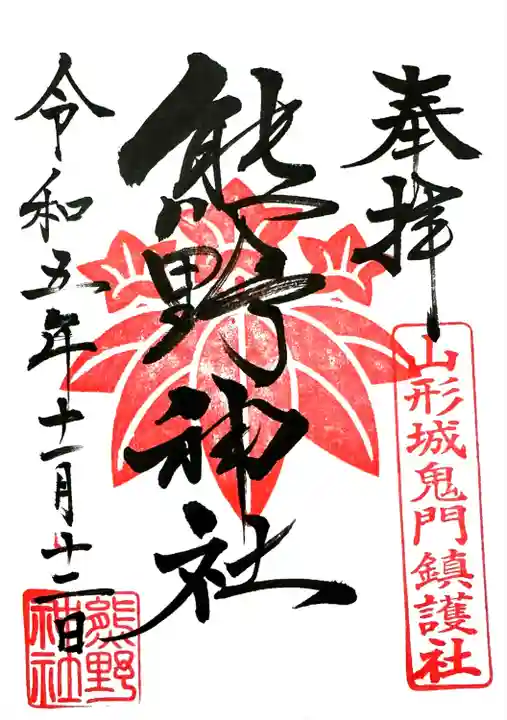 奉拝
山形城鬼門鎮護社
熊野神社
令和五年十一月十二日
熊野
神社